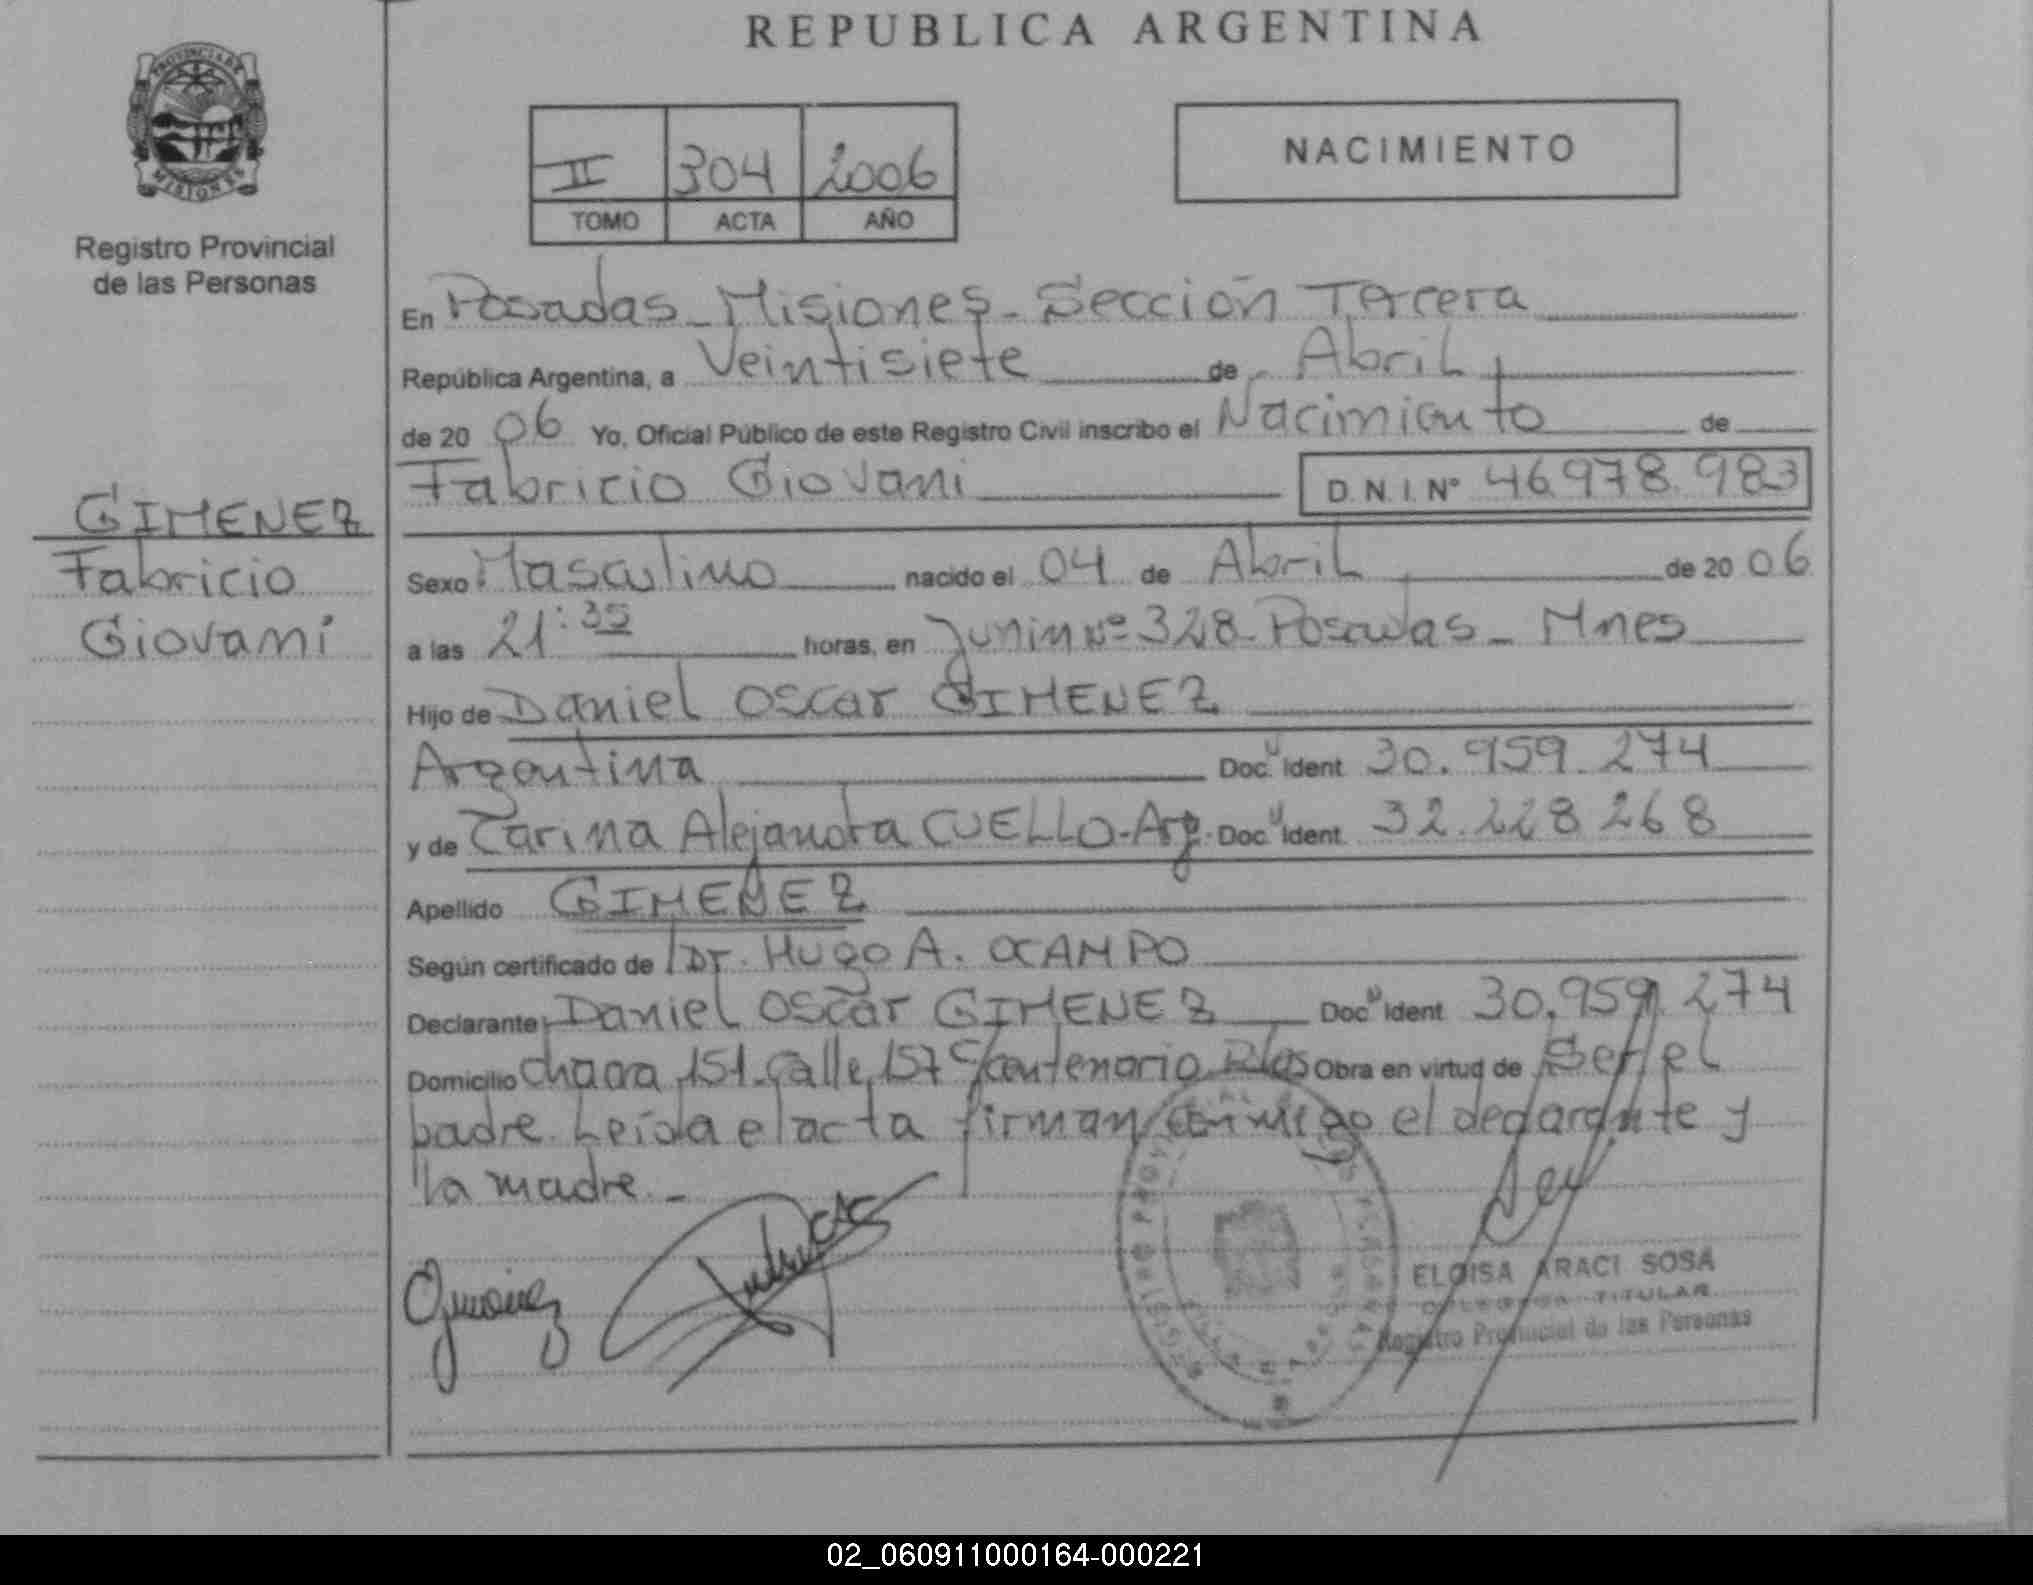 REPUBLICA ARGENTINA
PROVINCIA DE
MISIONES
Registro Provincial
de las Personas
II 304 2006
TOMO ACTA AÑO
NACIMIENTO
En Posadas - Misiones - Sección Tercera
República Argentina, a Veintisiete de Abril
de 20 06 Yo, Oficial Público de este Registro Civil inscribo el Nacimiento de
Fabricio Giovani D.N.I. Nº 46.978.983
GIMENEZ
Fabricio
Giovani
Sexo Masculino nacido el 04 de Abril de 20 06
a las 21:35 horas, en Junin Nº 328 - Posadas - Mnes
Hijo de Daniel Oscar GIMENEZ
Argentina Doc. Ident 30.959.274
y de Carina Alejandra CUELLO - Arg. Doc. Ident. 32.228.268
Apellido GIMENEZ
Según certificado de Dr. Hugo A. OCAMPO
Declarante Daniel Oscar GIMENEZ Doc. Ident 30.959.274
Domicilio Chacra 151 - Calle 157 Centenario Obra en virtud de Ser el
padre. Leída el acta firman conmigo el declarante y
la madre. -
ELOISA ARACI SOSA
DELEGADA TITULAR
Registro Provincial de las Personas
02_060911000164-000221